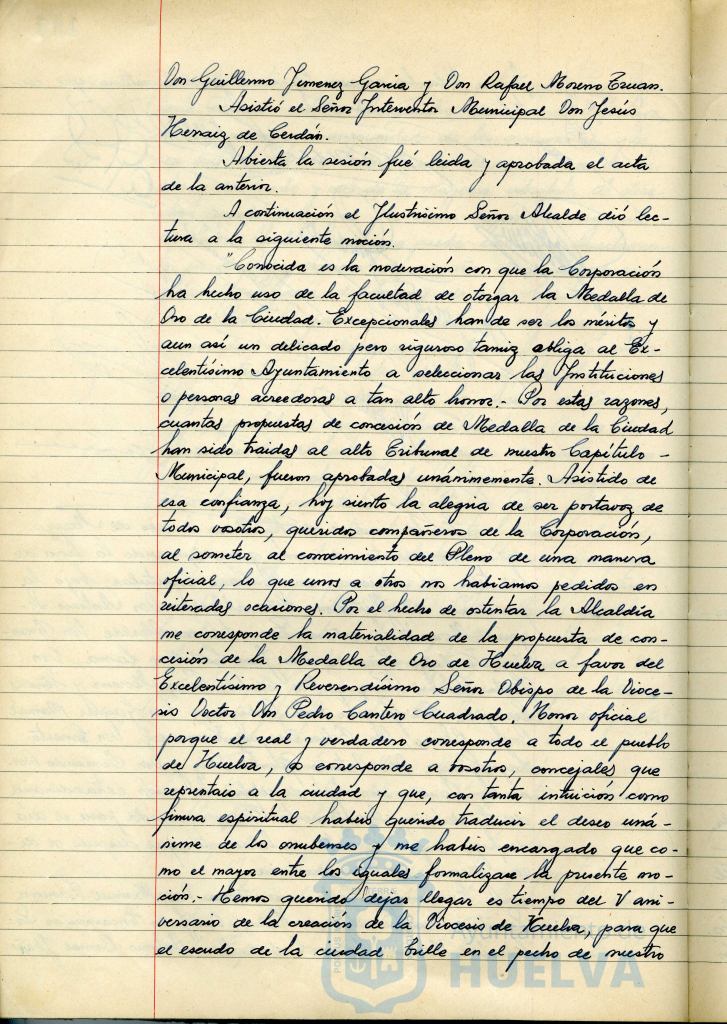 Don Guillermo Jimenez Garcia y Don Rafael Moreno Truan.
Asistió el Señor Interventor Municipal Don Jesús
Hernaiz de Cerdán.
Abierta la sesión fué leida y aprobada el acta
de la anterior.
A continuación el Ilustrisimo Señor Alcalde dió lec-
tura a la siguiente moción.
"Conocida es la moderación con que la Corporación
ha hecho uso de la facultad de otorgar la Medalla de
Oro de la Ciudad. Excepcionales han de ser los méritos y
aun así un delicado pero riguroso tamiz obliga al Ex-
celentísimo Ayuntamiento a seleccionar las Instituciones
o personas acreedoras a tan alto honor.- Por estas razones,
cuantas propuestas de concesión de Medalla de la Ciudad
han sido traidas al alto Tribunal de nuestro Capítulo -
Municipal, fueron aprobadas unánimemente. Asistido de
esa confianza, hoy siento la alegria de ser portavoz de
todos vosotros, queridos compañeros de la Corporación,
al someter al conocimiento del Pleno de una manera
oficial, lo que unos a otros nos habiamos pedidos en
reiteradas ocasiones. Por el hecho de ostentar la Alcaldía
me corresponde la materialidad de la propuesta de con-
cesión de la Medalla de Oro de Huelva a favor del
Excelentísimo y Reverendísimo Señor Obispo de la Dioce-
sis Doctor Don Pedro Cantero Cuadrado. Honor oficial
porque el real y verdadero corresponde a todo el pueblo
de Huelva, o corresponde a vosotros, concejales que
reprentais a la ciudad y que, con tanta intuición como
finura espiritual habeis querido traducir el deseo uná-
nime de los onubenses y me habeis encargado que co-
mo el mayor entre los iguales formalizase la presente mo-
ción.- Hemos querido dejar llegar es tiempo del V ani-
versario de la creación de la Diocesis de Huelva, para que
el escudo de la ciudad brille en el pecho de nuestro
Ayuntamiento de
HUELVA